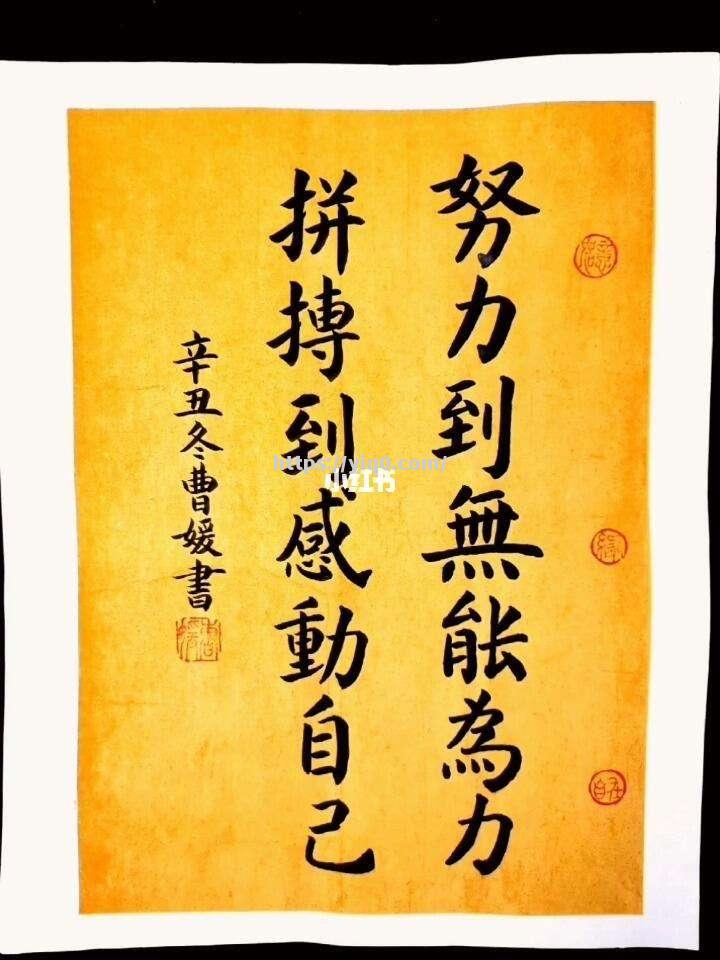 努力到無能為力
拼搏到感動自己
辛丑冬曹媛書
小红书